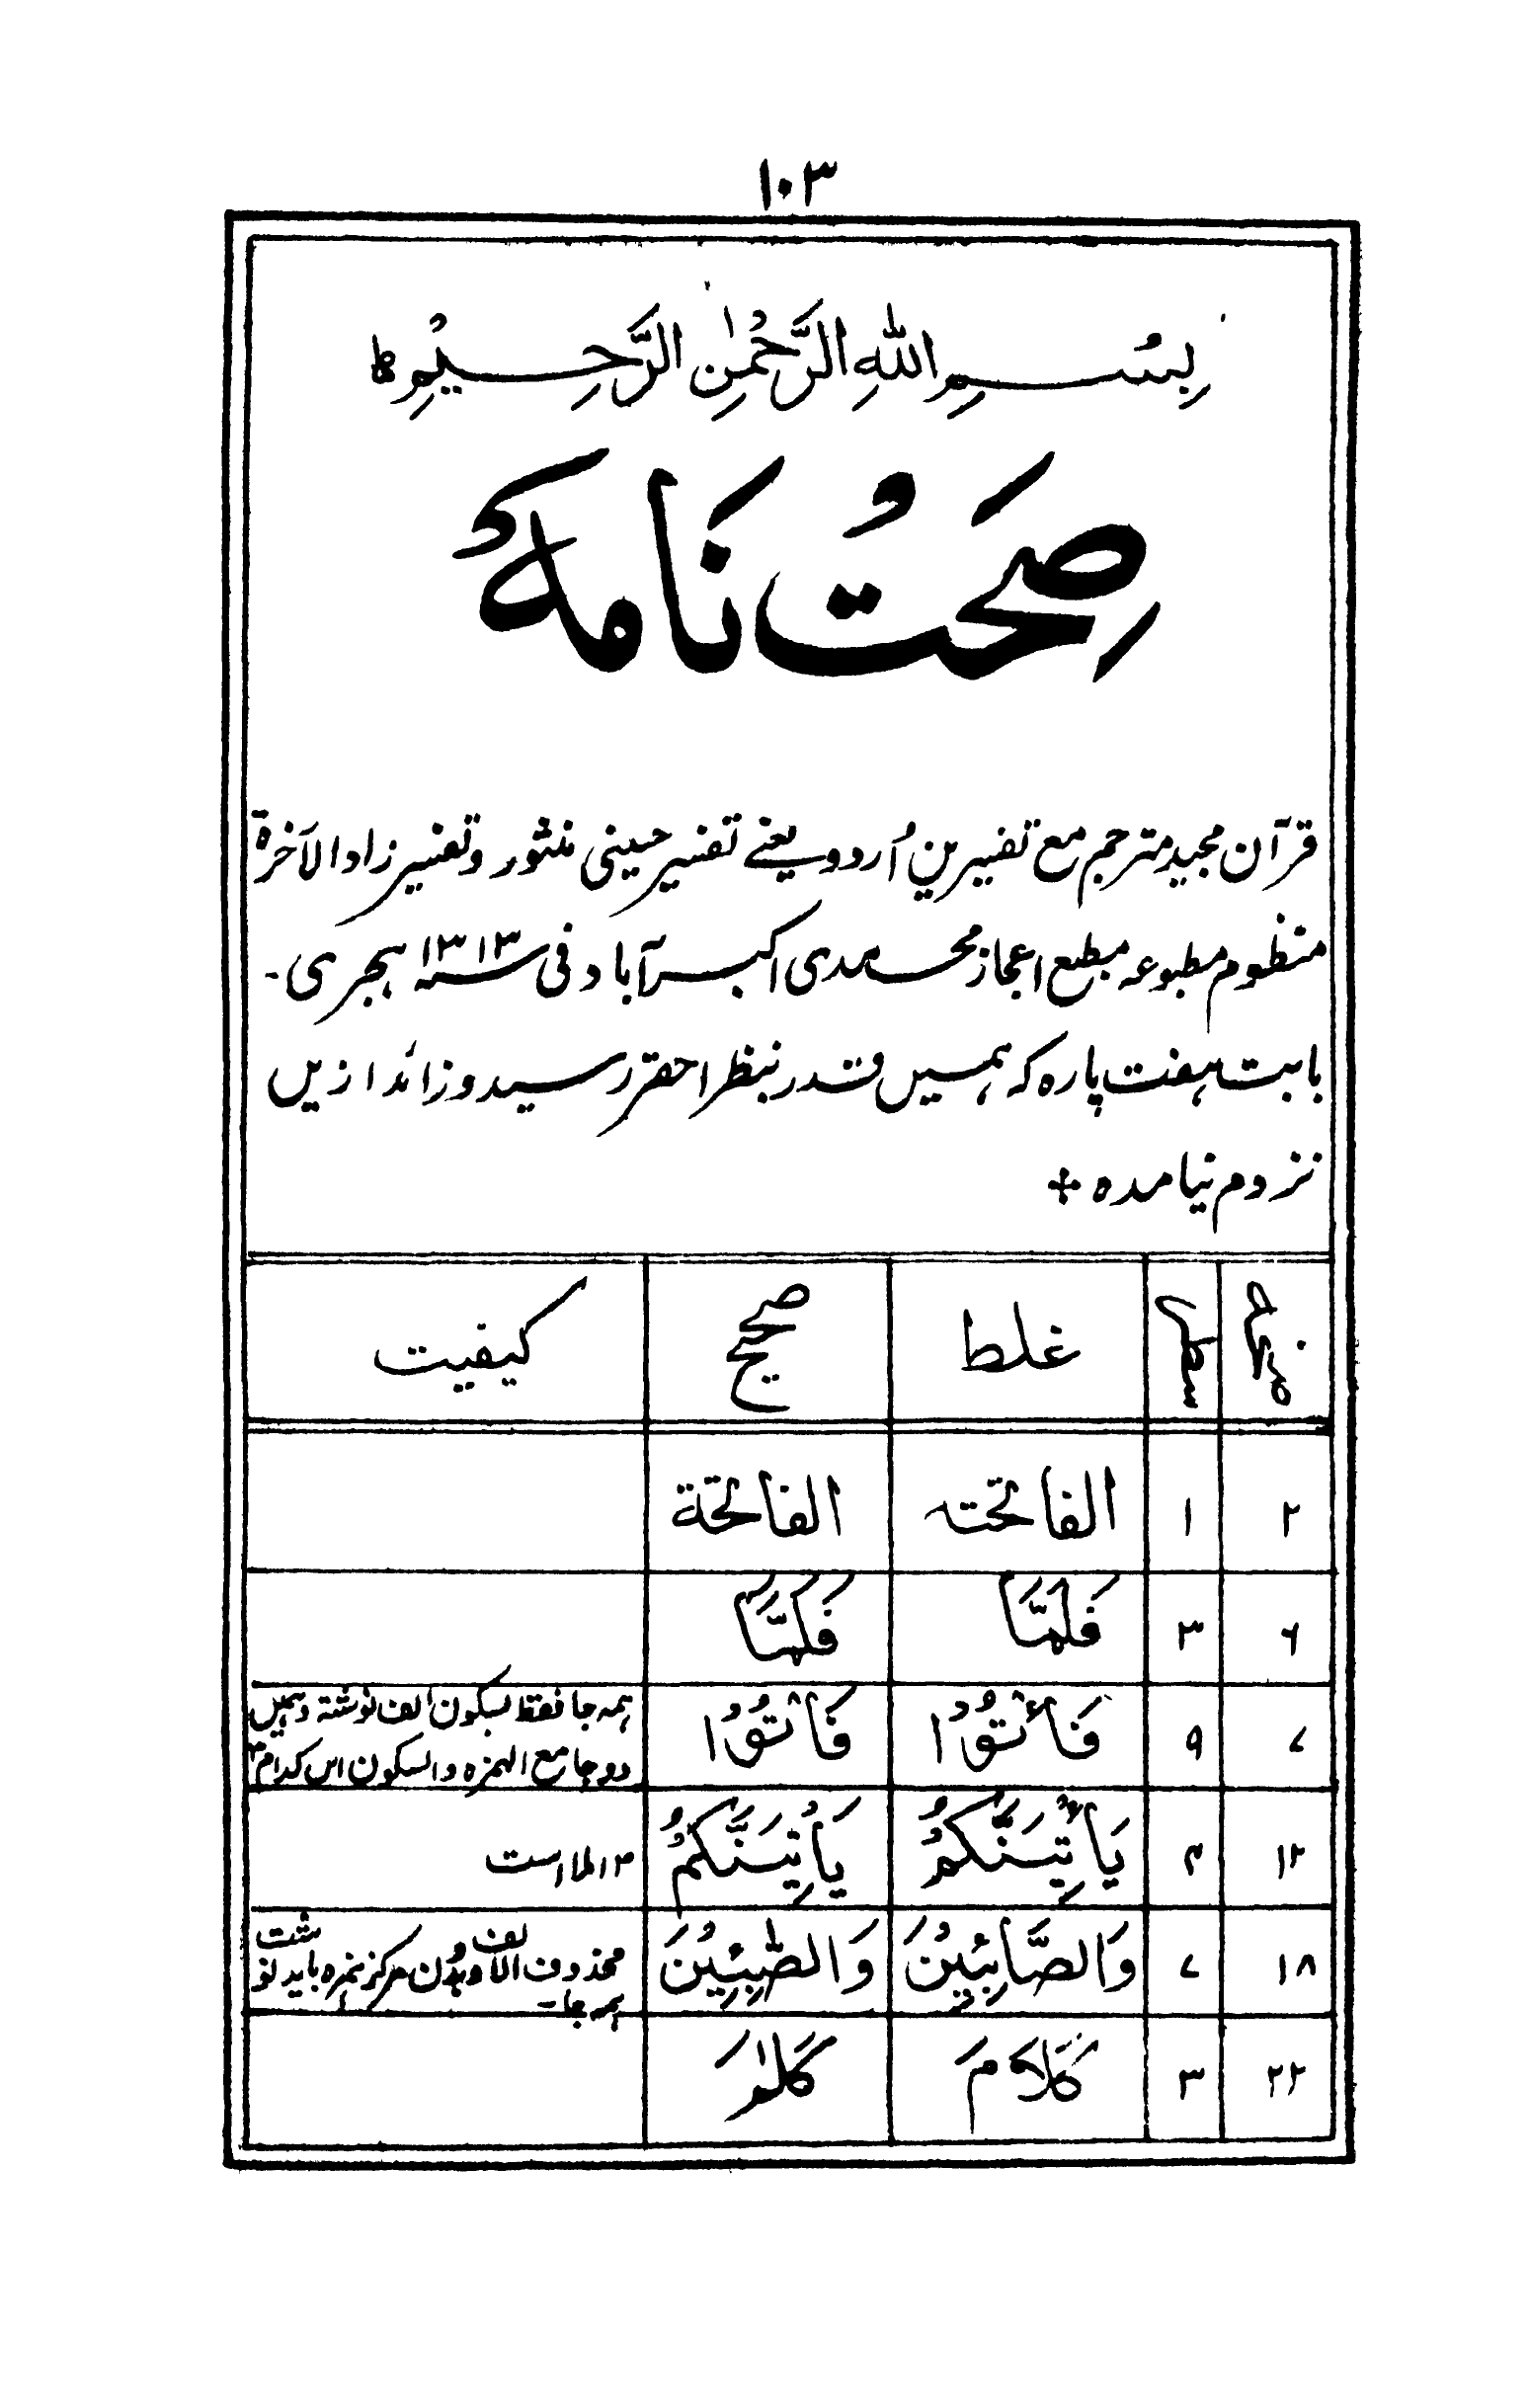 ۱۰۳
بِسْمِ اللهِ الرَّحْمٰنِ الرَّحِيْمِ ط
صِحَتُ نَامَہٗ
قرآن مجید مترجم مع تفسیرین اُردو یعنے تفسیر حسینی منثور و تفسیر زاد الآخرۃ
منظوم مطبوعہ مطبع اعجاز محمدی اکبرآباد فی سنہ ۱۳۱۳ ہجری -
بابت ہفت پارہ کہ ہمیں قدر بنظر احقر رسید و زائد ازیں
نزوم نیامدہ +
صفحہ سطر غلط صحیح کیفیت
۲ ۱ الفاتحتہ الفاتحة
۶ ۳ فَلَمَّا فَلَمَّآ
۷ ۹ فَأْتُوْا فَاْتُوْا ہمہ جا فقط بسکون الف نوشتہ وہمیں
دو جا مع الہمزہ والسکون اس کدام
۱۲ ۴ يَأْتِيَنَّكُمْ يَاْتِيَنَّكُمْ ۱۲ املا است
۱۸ ۷ وَالصَّابِئِيْنَ وَالصّٰبِئِيْنَ محذوف الالف و بدون مرکز ہمزہ باید نوشت
ہمہ جا -
۲۲ ۳ كَلَامَ كَلٰمَ